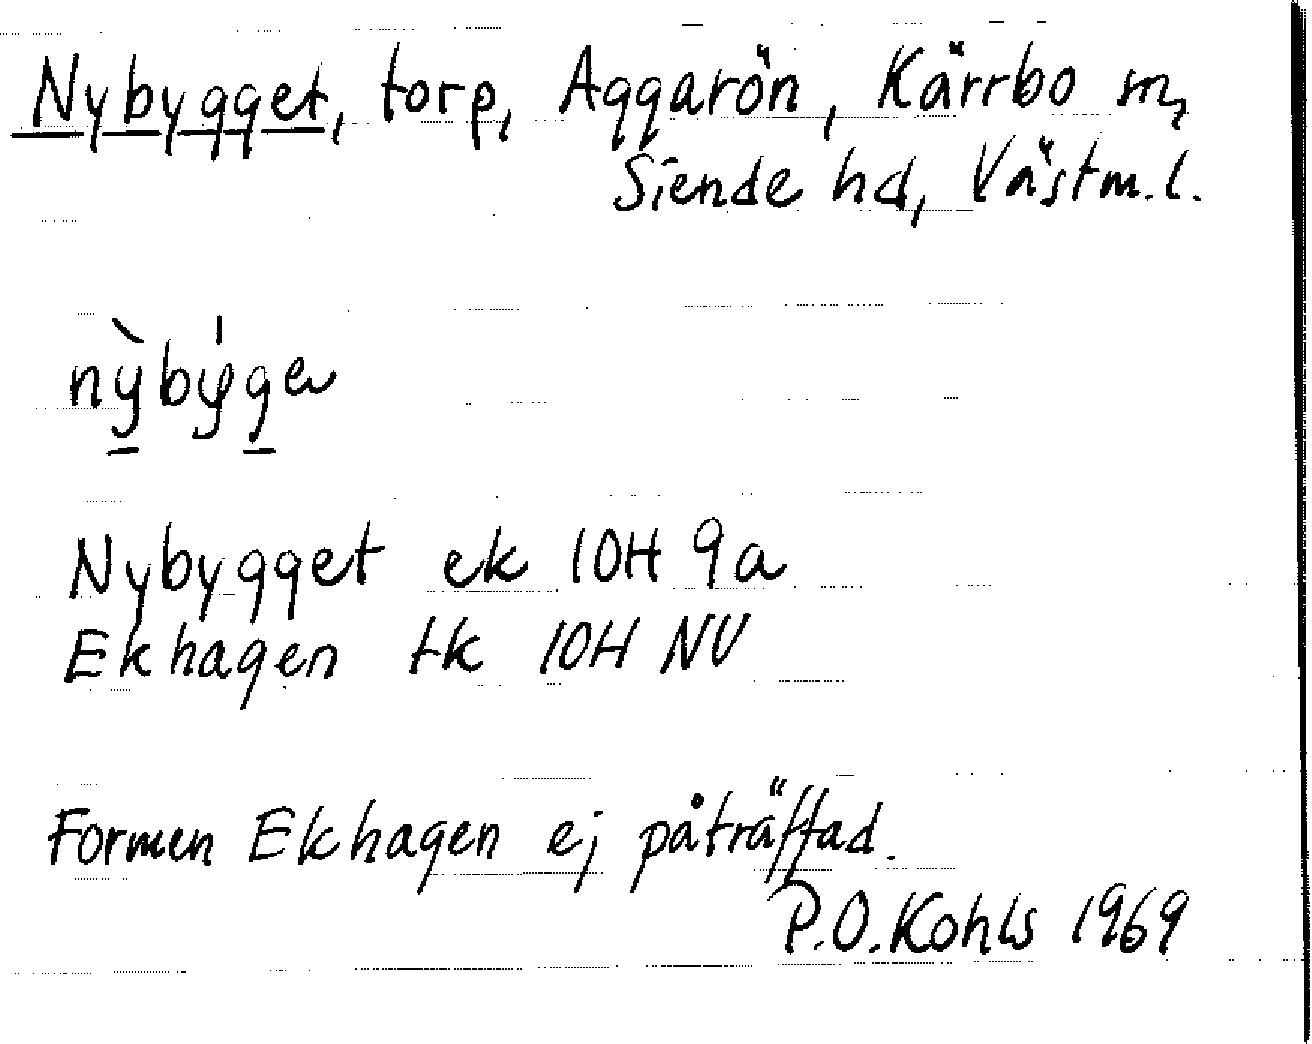 Nybygget, torp, Aggarön, Kärrbo sn,
Siende hd, Västm.l.
nỳbýge
Nybygget ek 10H 9a
Ekhagen tk 10H NV
Formen Ekhagen ej påträffad.
P.O. Kohls 1969